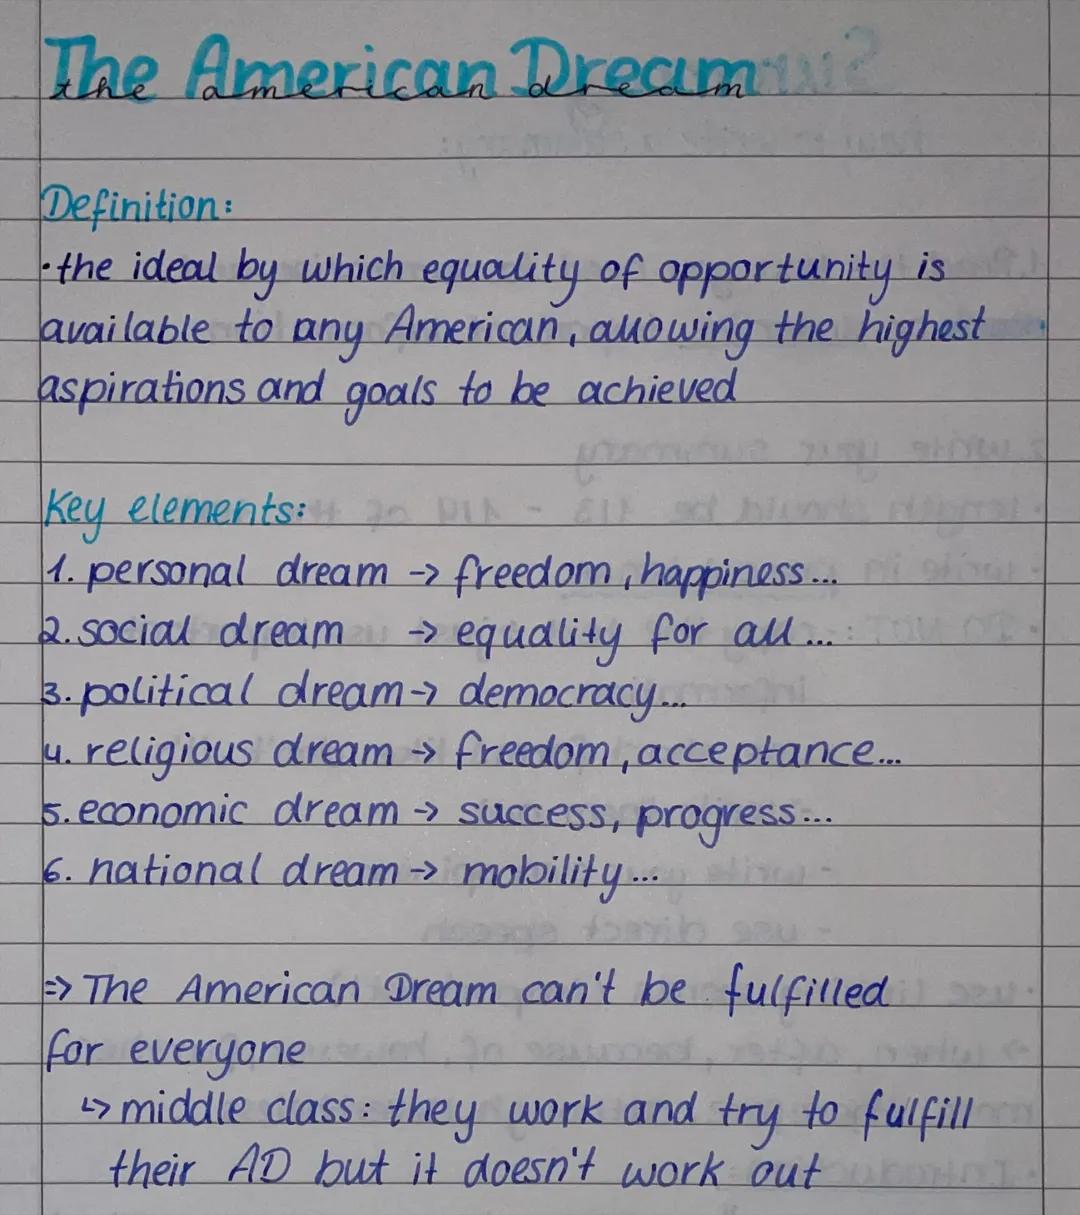 The American Dream
the american dream
Definition:
·the ideal by which equality of opportunity is
available to any American, allowing the highest
aspirations and goals to be achieved
Key elements:
1. personal dream → freedom, happiness...
2. social dream → equality for all...
3. political dream → democracy...
4. religious dream → freedom, acceptance...
5. economic dream → success, progress...
6. national dream → mobility...
⇒ The American Dream can't be fulfilled
for everyone
↳ middle class: they work and try to fulfill
their AD but it doesn't work out